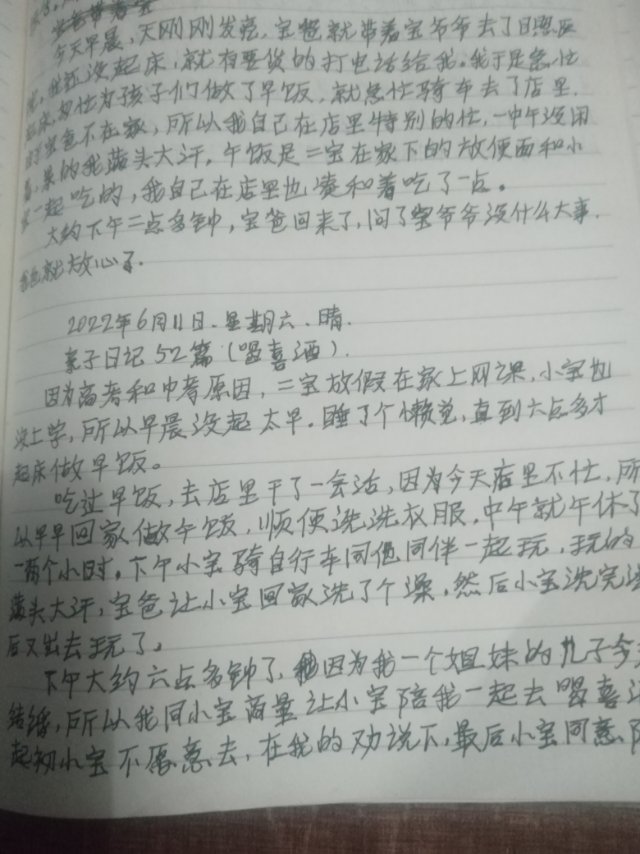 宝爸带着宝
今天早晨，天刚刚发亮，宝爸就带着宝爷爷去了日照医
院，我还没起床，就有要货的打电话给我。我于是急忙
起床匆忙为孩子们做了早饭，就急忙骑车去了店里，
由于宝爸不在家，所以我自己在店里特别的忙，一中午没闲
着，累的我满头大汗，午饭是二宝在家下的放便面和小
宝一起吃的，我自己在店里也凑和着吃了一点。
大约下午二点多钟，宝爸回来了，问了宝爷爷没什么大事，
我也就放心了。
2022年6月11日、星期六、晴，
亲子日记52篇（喝喜酒）．
因为高考和中考原因，二宝放假在家上网课，小宝也
没上学，所以早晨没起太早。睡了个懒觉，直到六点多才
起床做早饭。
吃过早饭，去店里干了一会活，因为今天店里不忙，所
以早早回家做午饭，顺便洗洗衣服，中午就午休了
一两个小时。下午小宝骑自行车同他同伴一起玩，玩的
满头大汗，宝爸让小宝回家洗了个澡，然后小宝洗完澡
后又出去玩了。
下午大约六点多钟了，因为我一个姐妹的儿子今
结婚，所以我同小宝商量让小宝陪我一起去喝喜
起初小宝不愿意去，在我的劝说下，最后小宝同意